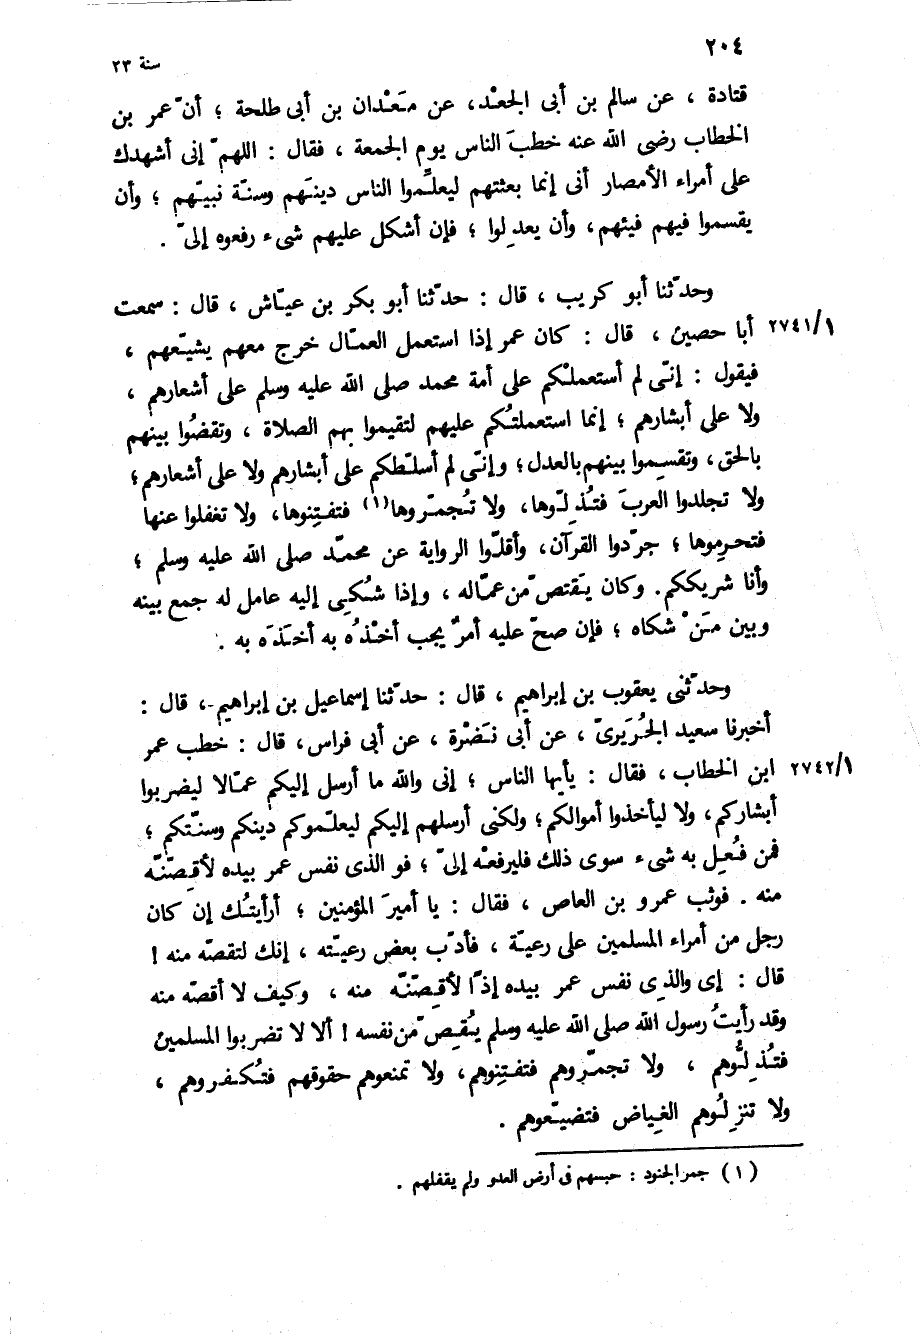 ٢٠٤
سنة ٢٣
قتادة ، عن سالم بن أبى الجعْد، عن مَعْدان بن أبى طلحة ؛ أنّ عمر بن
الخطاب رضى الله عنه خطبَ الناس يوم الجمعة ، فقال : اللهمّ إنى أشهدك
على أمراء الأمصار أنى إنما بعثتهم ليعلِّموا الناس دينَهم وسنّة نبيّهم ؛ وأن
يقسموا فيهم فيئهم، وأن يعدِلوا ؛ فإن أشكل عليهم شىء رفعوه إلىّ .
وحدّثنا أبو كريب ، قال : حدّثنا أبو بكر بن عيّاش ، قال : سمعت
٢٧٤١/١ أبا حصين ، قال : كان عمر إذا استعمل العمّال خرج معهم يشيّعهم ،
فيقول : إنّى لم أستعملْكم على أمة محمد صلى الله عليه وسلم على أشعارهم ،
ولا على أبشارهم ؛ إنما استعملتُكم عليهم لتقيموا بهم الصلاة ، وتقضُوا بينهم
بالحق، وتقسِموا بينهم بالعدل؛ وإنّى لم أسلّطكم على أبشارهم ولا على أشعارهم؛
ولا تجلدوا العربَ فتُذِلّوها، ولا تُجمّروها(١) فتفتِنوها، ولا تغفلوا عنها
فتحرِموها ؛ جرّدوا القرآن، وأقلّوا الرواية عن محمّد صلى الله عليه وسلم ؛
وأنا شريككم. وكان يَقتصّ من عمّاله ، وإذا شُكِى إليه عامل له جمع بينه
وبين مَنْ شكاه ؛ فإن صحّ عليه أمرٌ يجب أخْذُه به أخَذَه به .
وحدّثنى يعقوب بن إبراهيم ، قال : حدّثنا إسماعيل بن إبراهيم ، قال :
أخبرنا سعيد الجُرَيرىّ ، عن أبى نَضْرة ، عن أبى فراس، قال : خطب عمر
٢٧٤٢/١ ابن الخطاب ، فقال : يأيها الناس ؛ إنى والله ما أرسل إليكم عمّالا ليضربوا
أبشاركم، ولا ليأخذوا أموالكم؛ ولكنى أرسلهم إليكم ليعلّموكم دينكم وسنّتكم ؛
فمن فُعِل به شىء سوى ذلك فليرفعْه إلىّ ؛ فو الذى نفس عمر بيده لأقِصّنّه
منه . فوثب عمرو بن العاص ، فقال : يا أميرَ المؤمنين ؛ أرأيتُك إن كان
رجل من أمراء المسلمين على رعيّة ، فأدّب بعض رعيّته ، إنك لتقصّه منه !
قال : إى والذى نفس عمر بيده إذًا لأقِصّنّه منه ، وكيف لا أقصّه منه
وقد رأيتُ رسول الله صلى الله عليه وسلم يُقِصّ من نفسه ! ألا لا تضربوا المسلمين
فتُذِلُّوهم ، ولا تجمّروهم فتفتِنوهم، ولا تمنعوهم حقوقهم فتُكفروهم ،
ولا تنزِلُوهم الغِياض فتضيّعوهم .
(١) جمر الجنود : حبسهم فى أرض العدو ولم يقفلهم .